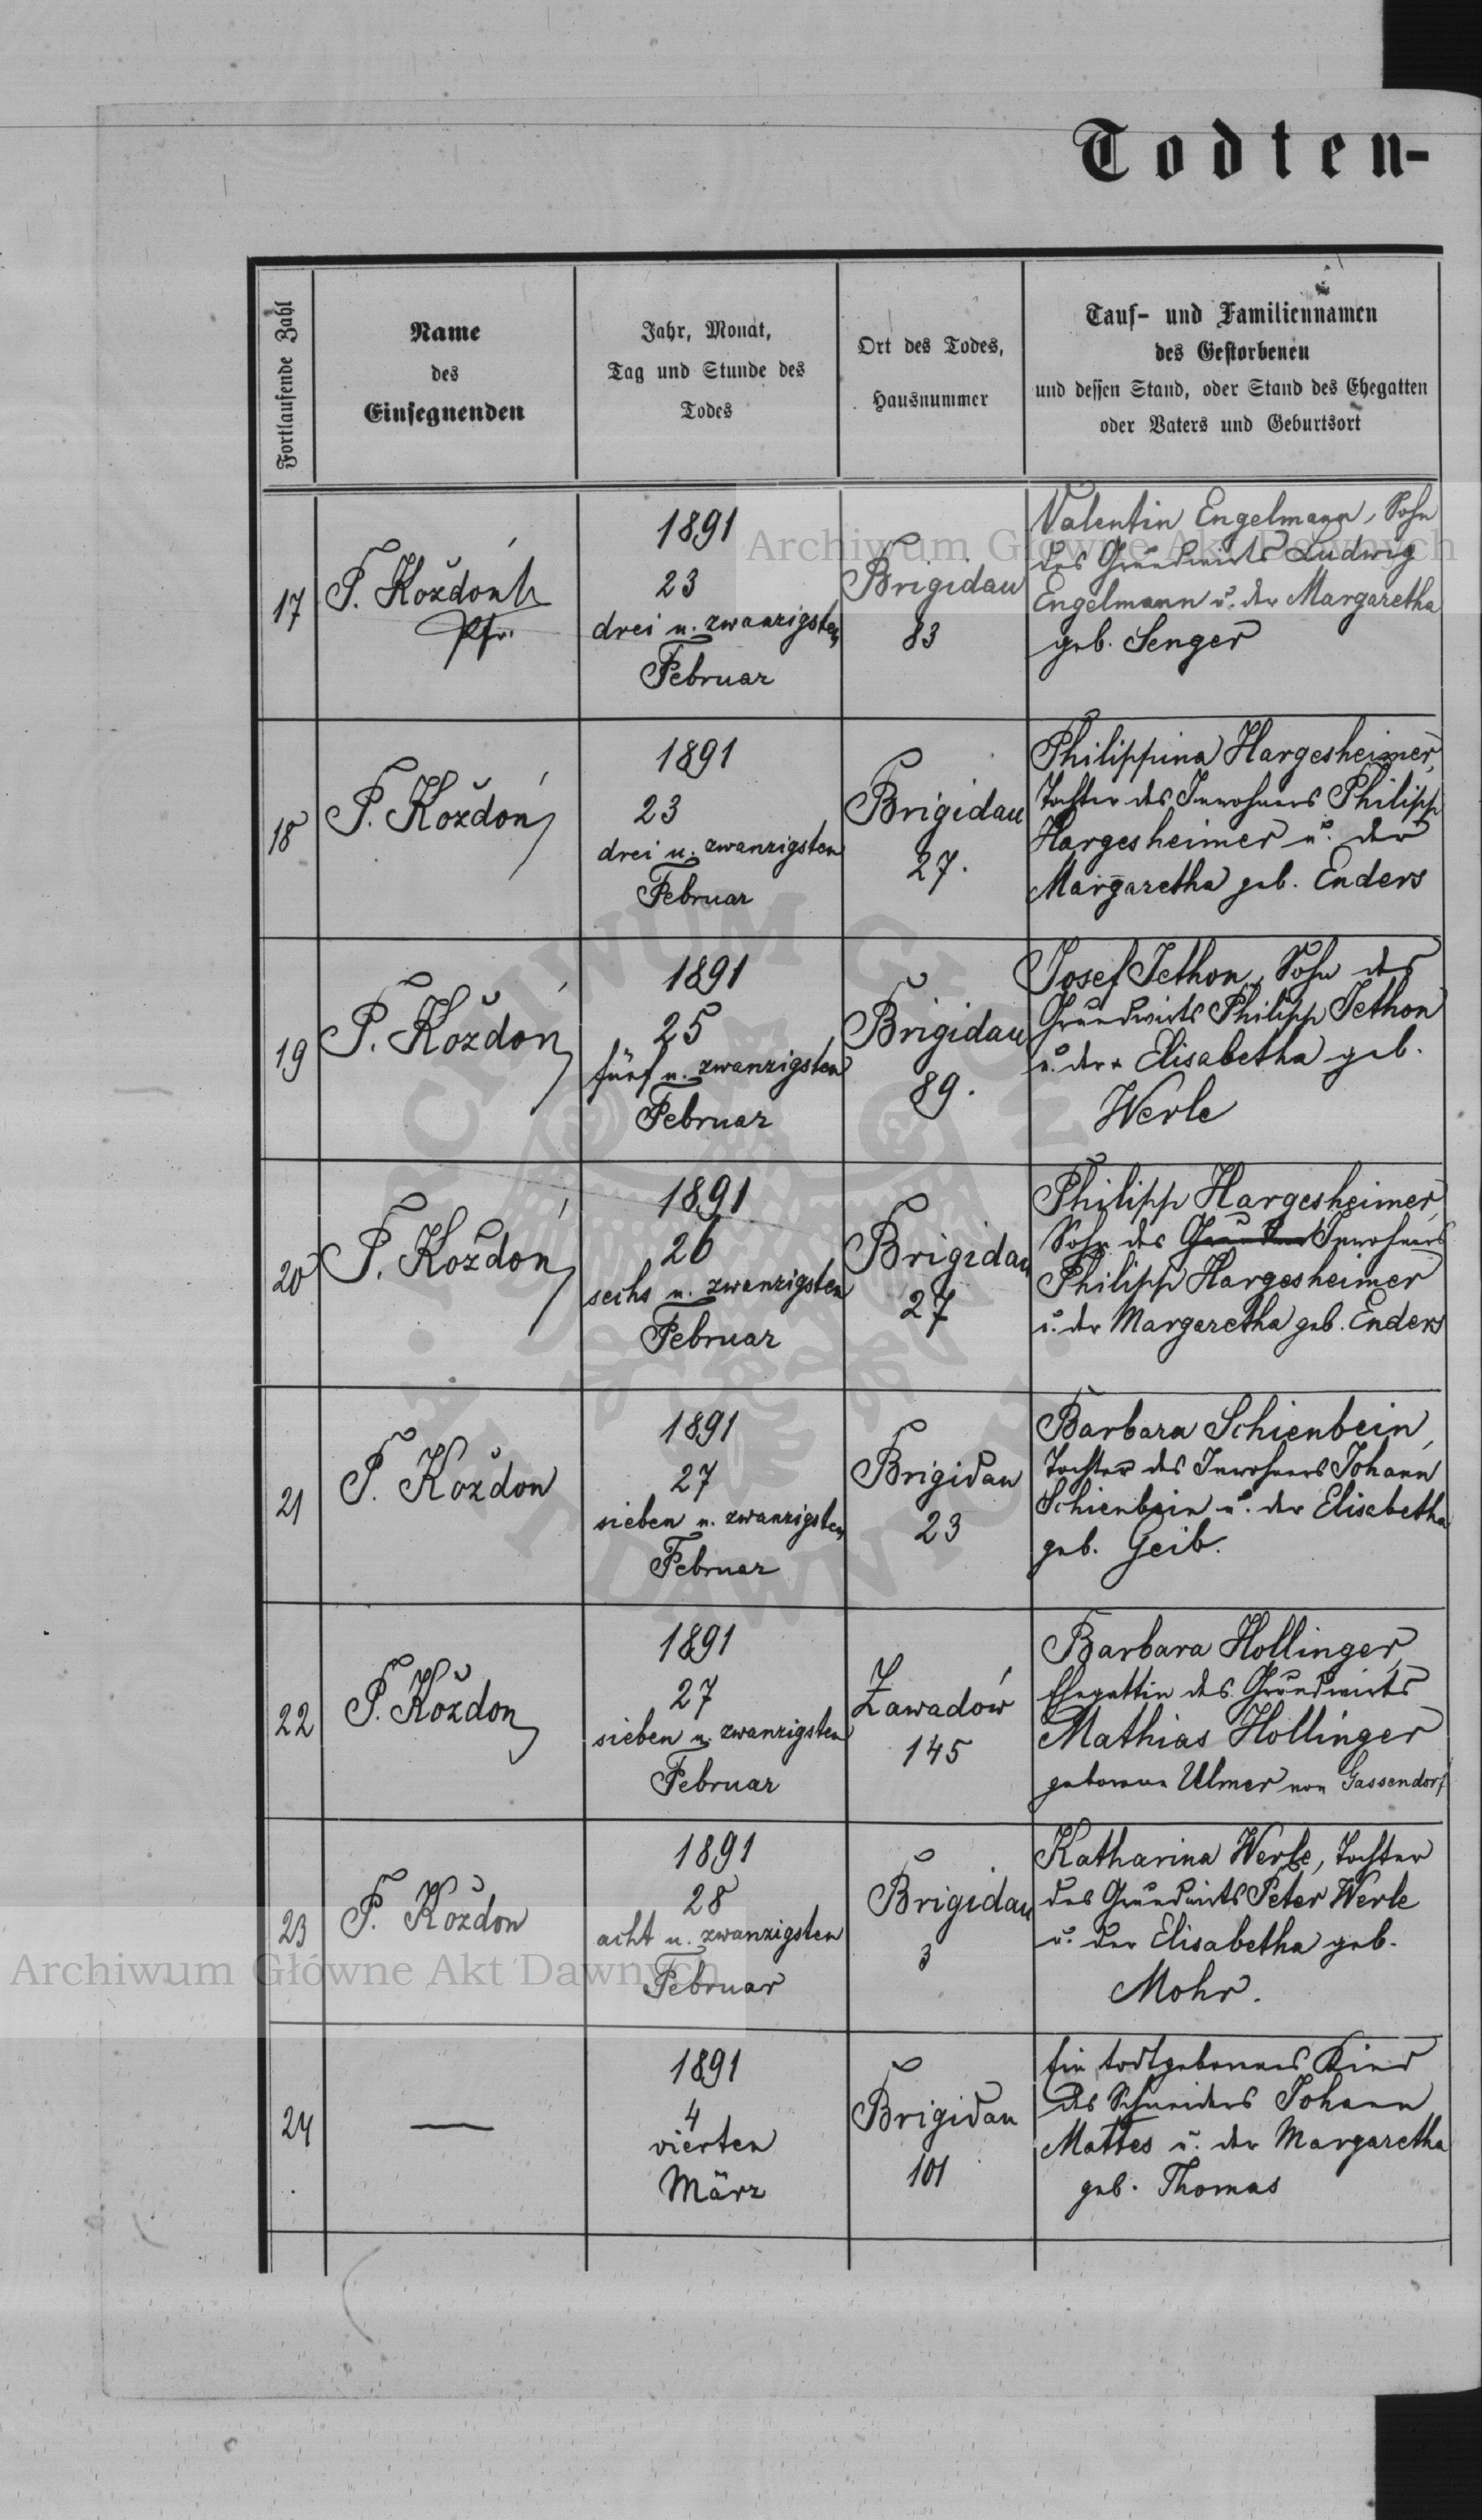 Todten-
Fortlaufende Zahl
Name
des
Einsegnenden
Jahr, Monat,
Tag und Stunde des
Todes
Ort des Todes,
Hausnummer
Tauf- und Familiennamen
des Gestorbenen
und dessen Stand, oder Stand des Ehegatten
oder Vaters und Geburtsort
17
F. Koždoń
Pfr.
1891
23
drei u. zwanzigsten
Februar
Brigidau
83
Valentin Engelmann, Sohn
des Grundwirts Ludwig
Engelmann u. der Margaretha
geb. Senger
18
F. Koždoń
1891
23
drei u. zwanzigsten
Februar
Brigidau
27.
Philippina Hargesheimer,
Tochter des Inwohners Philipp
Hargesheimer u. der
Margaretha geb. Enders
19
F. Koždoń
1891
25
fünf u. zwanzigsten
Februar
Brigidau
89.
Josef Jethon, Sohn des
Grundwirts Philipp Jethon
u. der Elisabetha geb.
Werle
20
F. Koždoń
1891
26
sechs u. zwanzigsten
Februar
Brigidau
27
Philipp Hargesheimer,
Sohn des Inwohners
Philipp Hargesheimer
u. der Margaretha geb. Enders
21
F. Koždon
1891
27
sieben u. zwanzigsten
Februar
Brigidau
23
Barbara Schienbein,
Tochter des Inwohners Johann
Schienbein u. der Elisabetha
geb. Geib.
22
F. Koždon
1891
27
sieben u. zwanzigsten
Februar
Zawadów
145
Barbara Hollinger,
Ehegattin des Grundwirts
Mathias Hollinger
geborene Ulmer von Gassendorf
23
F. Koždon
1891
28
acht u. zwanzigsten
Februar
Brigidau
3
Katharina Werle, Tochter
des Grundwirts Peter Werle
u. der Elisabetha geb.
Mohr.
24
—
1891
4
vierten
März
Brigidau
101
Ein todtgeborenes Kind
des Schneiders Johann
Mattes u. der Margaretha
geb. Thomas
Archiwum Główne Akt Dawnych
Archiwum Główne Akt Dawnych
ARCHIWUM GŁÓWNE AKT DAWNYCH